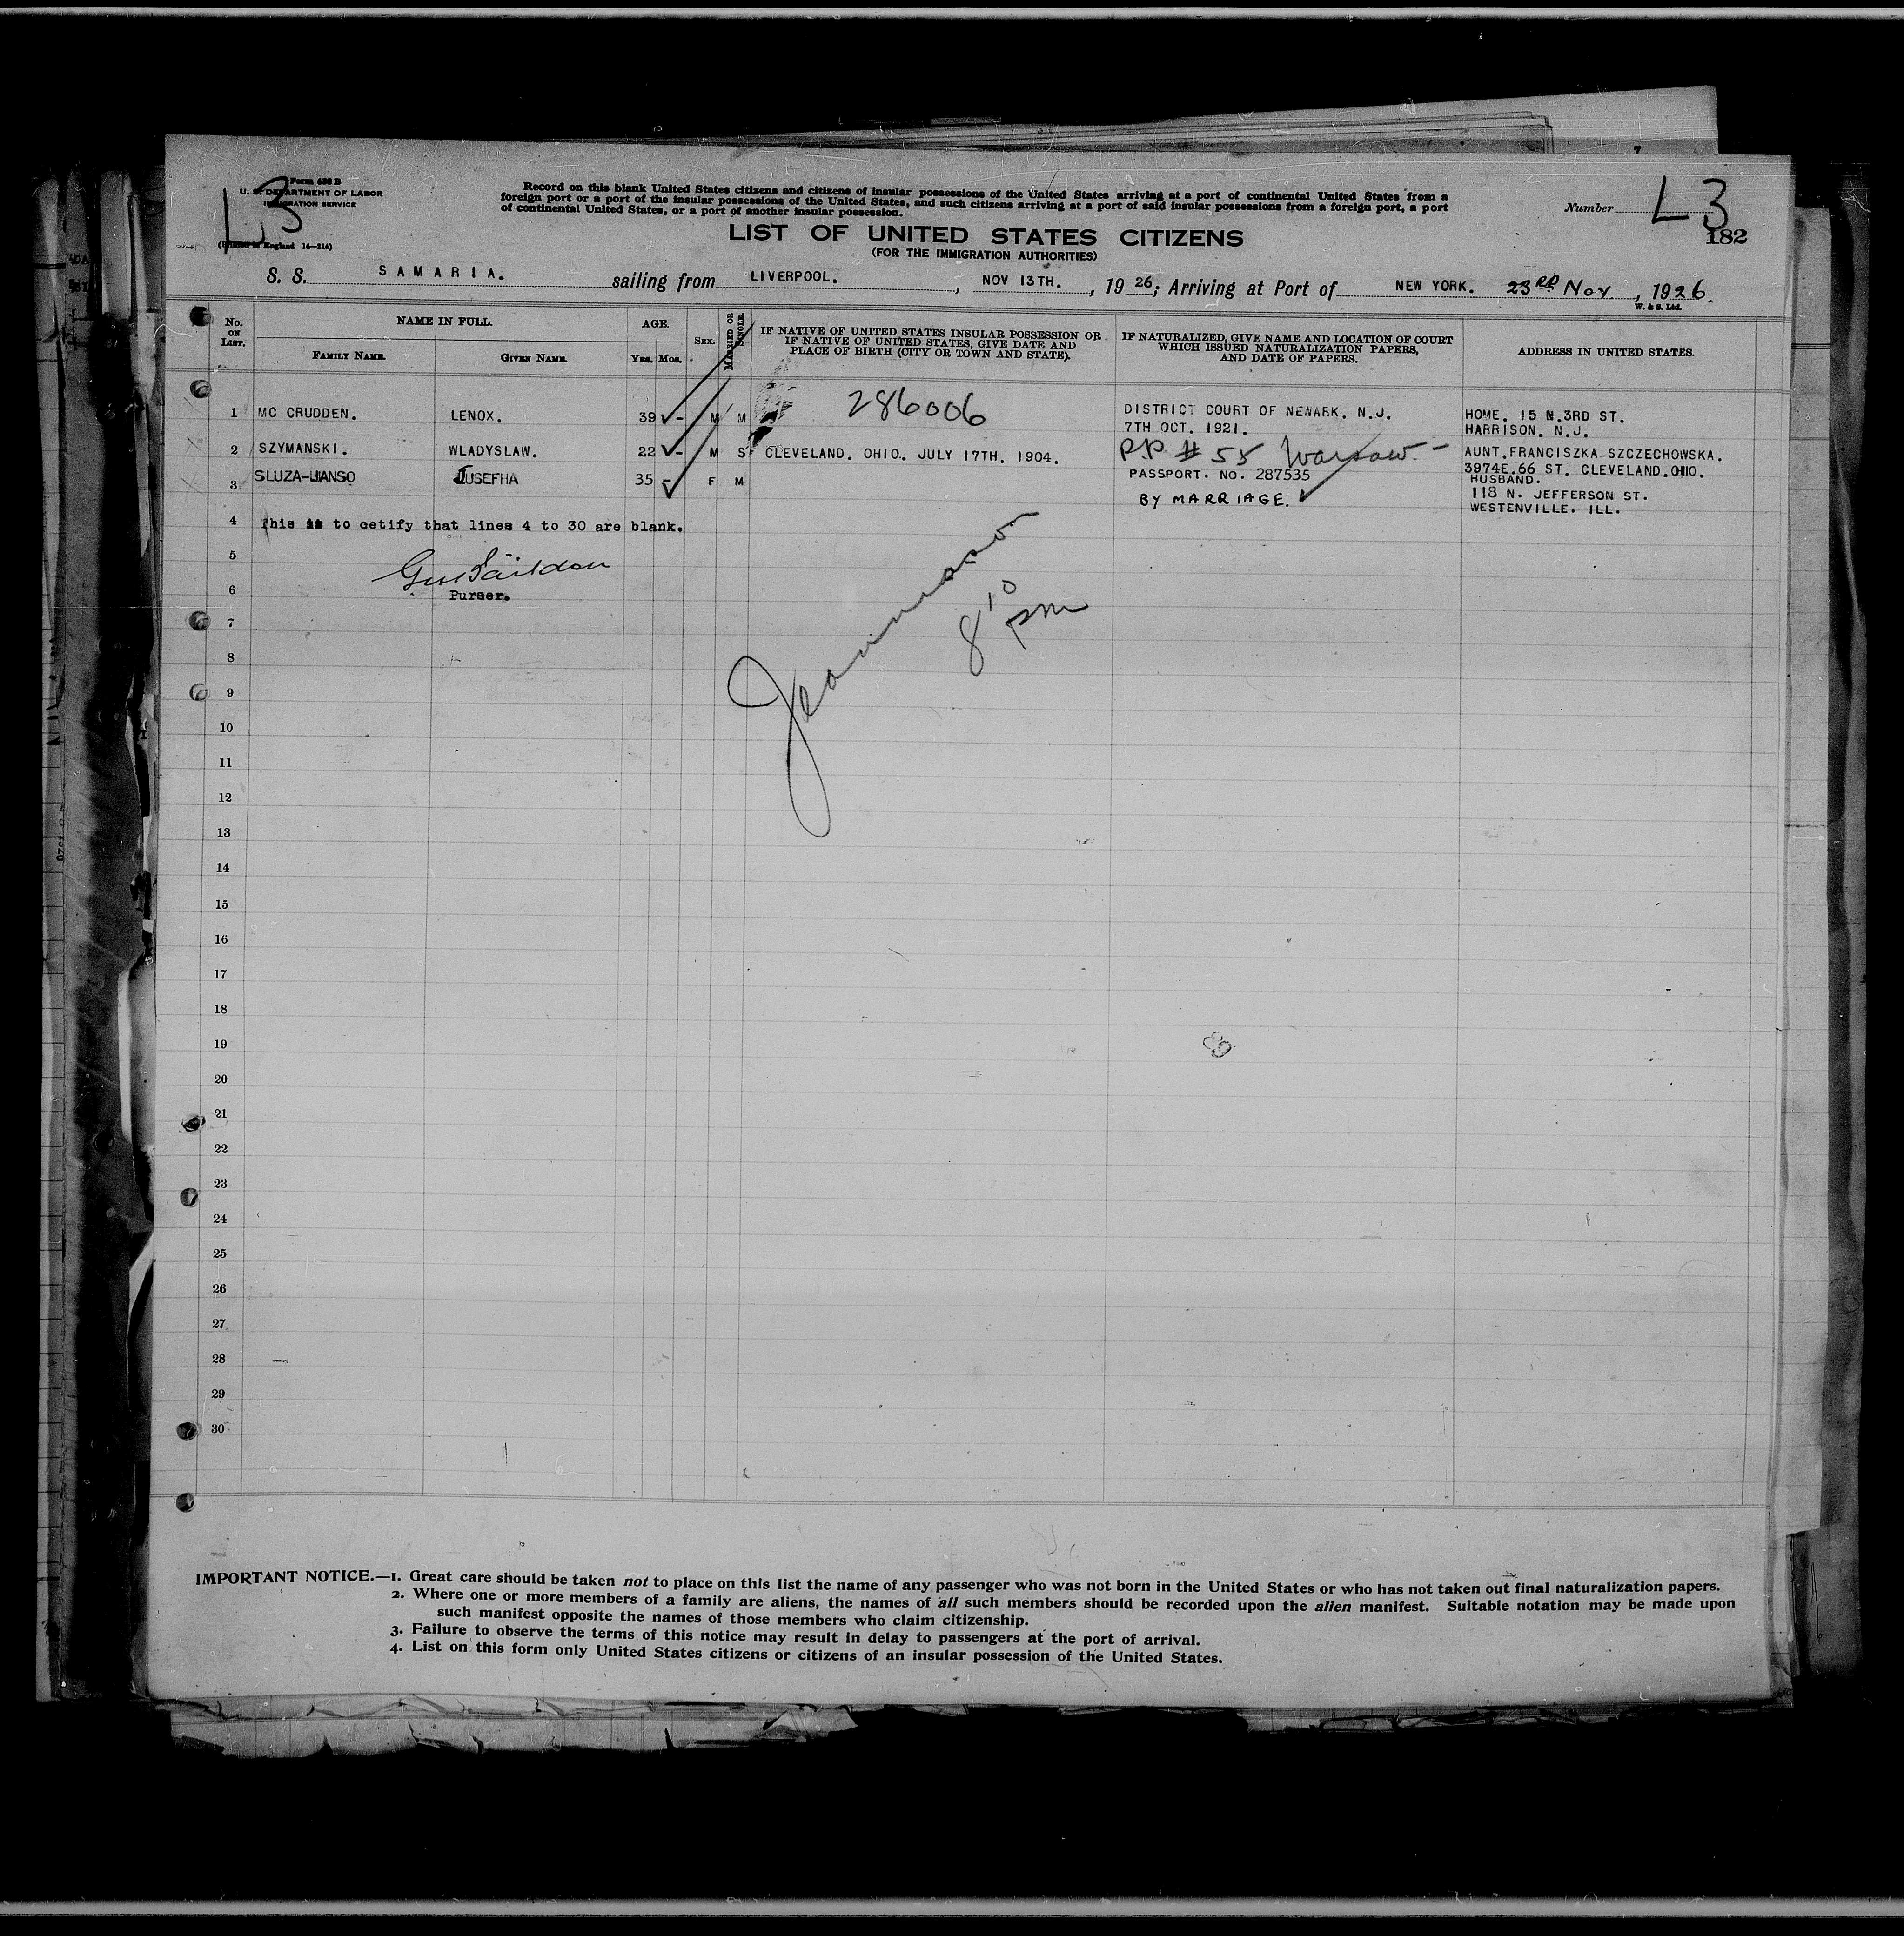 Form 630 B
U. S. DEPARTMENT OF LABOR
IMMIGRATION SERVICE
(Printed in England 14—214)
L3
Record on this blank United States citizens and citizens of insular possessions of the United States arriving at a port of continental United States from a
foreign port or a port of the insular possessions of the United States, and such citizens arriving at a port of said insular possessions from a foreign port, a port
of continental United States, or a port of another insular possession.
Number L3
182
LIST OF UNITED STATES CITIZENS
(FOR THE IMMIGRATION AUTHORITIES)
S. S. SAMARIA. sailing from LIVERPOOL. , NOV 13TH. , 19 26; Arriving at Port of NEW YORK. 23RD Nov , 1926.
W. & S. Ltd.
No. ON LIST. NAME IN FULL. FAMILY NAME. GIVEN NAME. AGE. YRS. MOS. SEX. MARRIED OR SINGLE.
IF NATIVE OF UNITED STATES INSULAR POSSESSION OR
IF NATIVE OF UNITED STATES, GIVE DATE AND
PLACE OF BIRTH (CITY OR TOWN AND STATE).
IF NATURALIZED, GIVE NAME AND LOCATION OF COURT
WHICH ISSUED NATURALIZATION PAPERS,
AND DATE OF PAPERS.
ADDRESS IN UNITED STATES.
1 MC CRUDDEN. LENOX. 39 - M M 286006 DISTRICT COURT OF NEWARK. N.J. HOME. 15 N.3RD ST.
7TH OCT. 1921. HARRISON. N.J.
2 SZYMANSKI. WLADYSLAW. 22 - M S CLEVELAND. OHIO. JULY 17TH. 1904. P.P. # 55 Warsaw. - AUNT.FRANCISZKA SZCZECHOWSKA.
3974E.66 ST. CLEVELAND.OHIO.
3 SLUZA-JANSO JUSEFHA 35 - F M PASSPORT. NO. 287535 HUSBAND.
BY MARRIAGE. 118 N. JEFFERSON ST.
WESTENVILLE. ILL.
4 This is to cetify that lines 4 to 30 are blank.
5
6
Purser.
8 10 pm
7
8
9
10
11
12
13
14
15
16
17
18
19
20
21
22
23
24
25
26
27
28
29
30
IMPORTANT NOTICE.—1. Great care should be taken not to place on this list the name of any passenger who was not born in the United States or who has not taken out final naturalization papers.
2. Where one or more members of a family are aliens, the names of all such members should be recorded upon the alien manifest. Suitable notation may be made upon
such manifest opposite the names of those members who claim citizenship.
3. Failure to observe the terms of this notice may result in delay to passengers at the port of arrival.
4. List on this form only United States citizens or citizens of an insular possession of the United States.